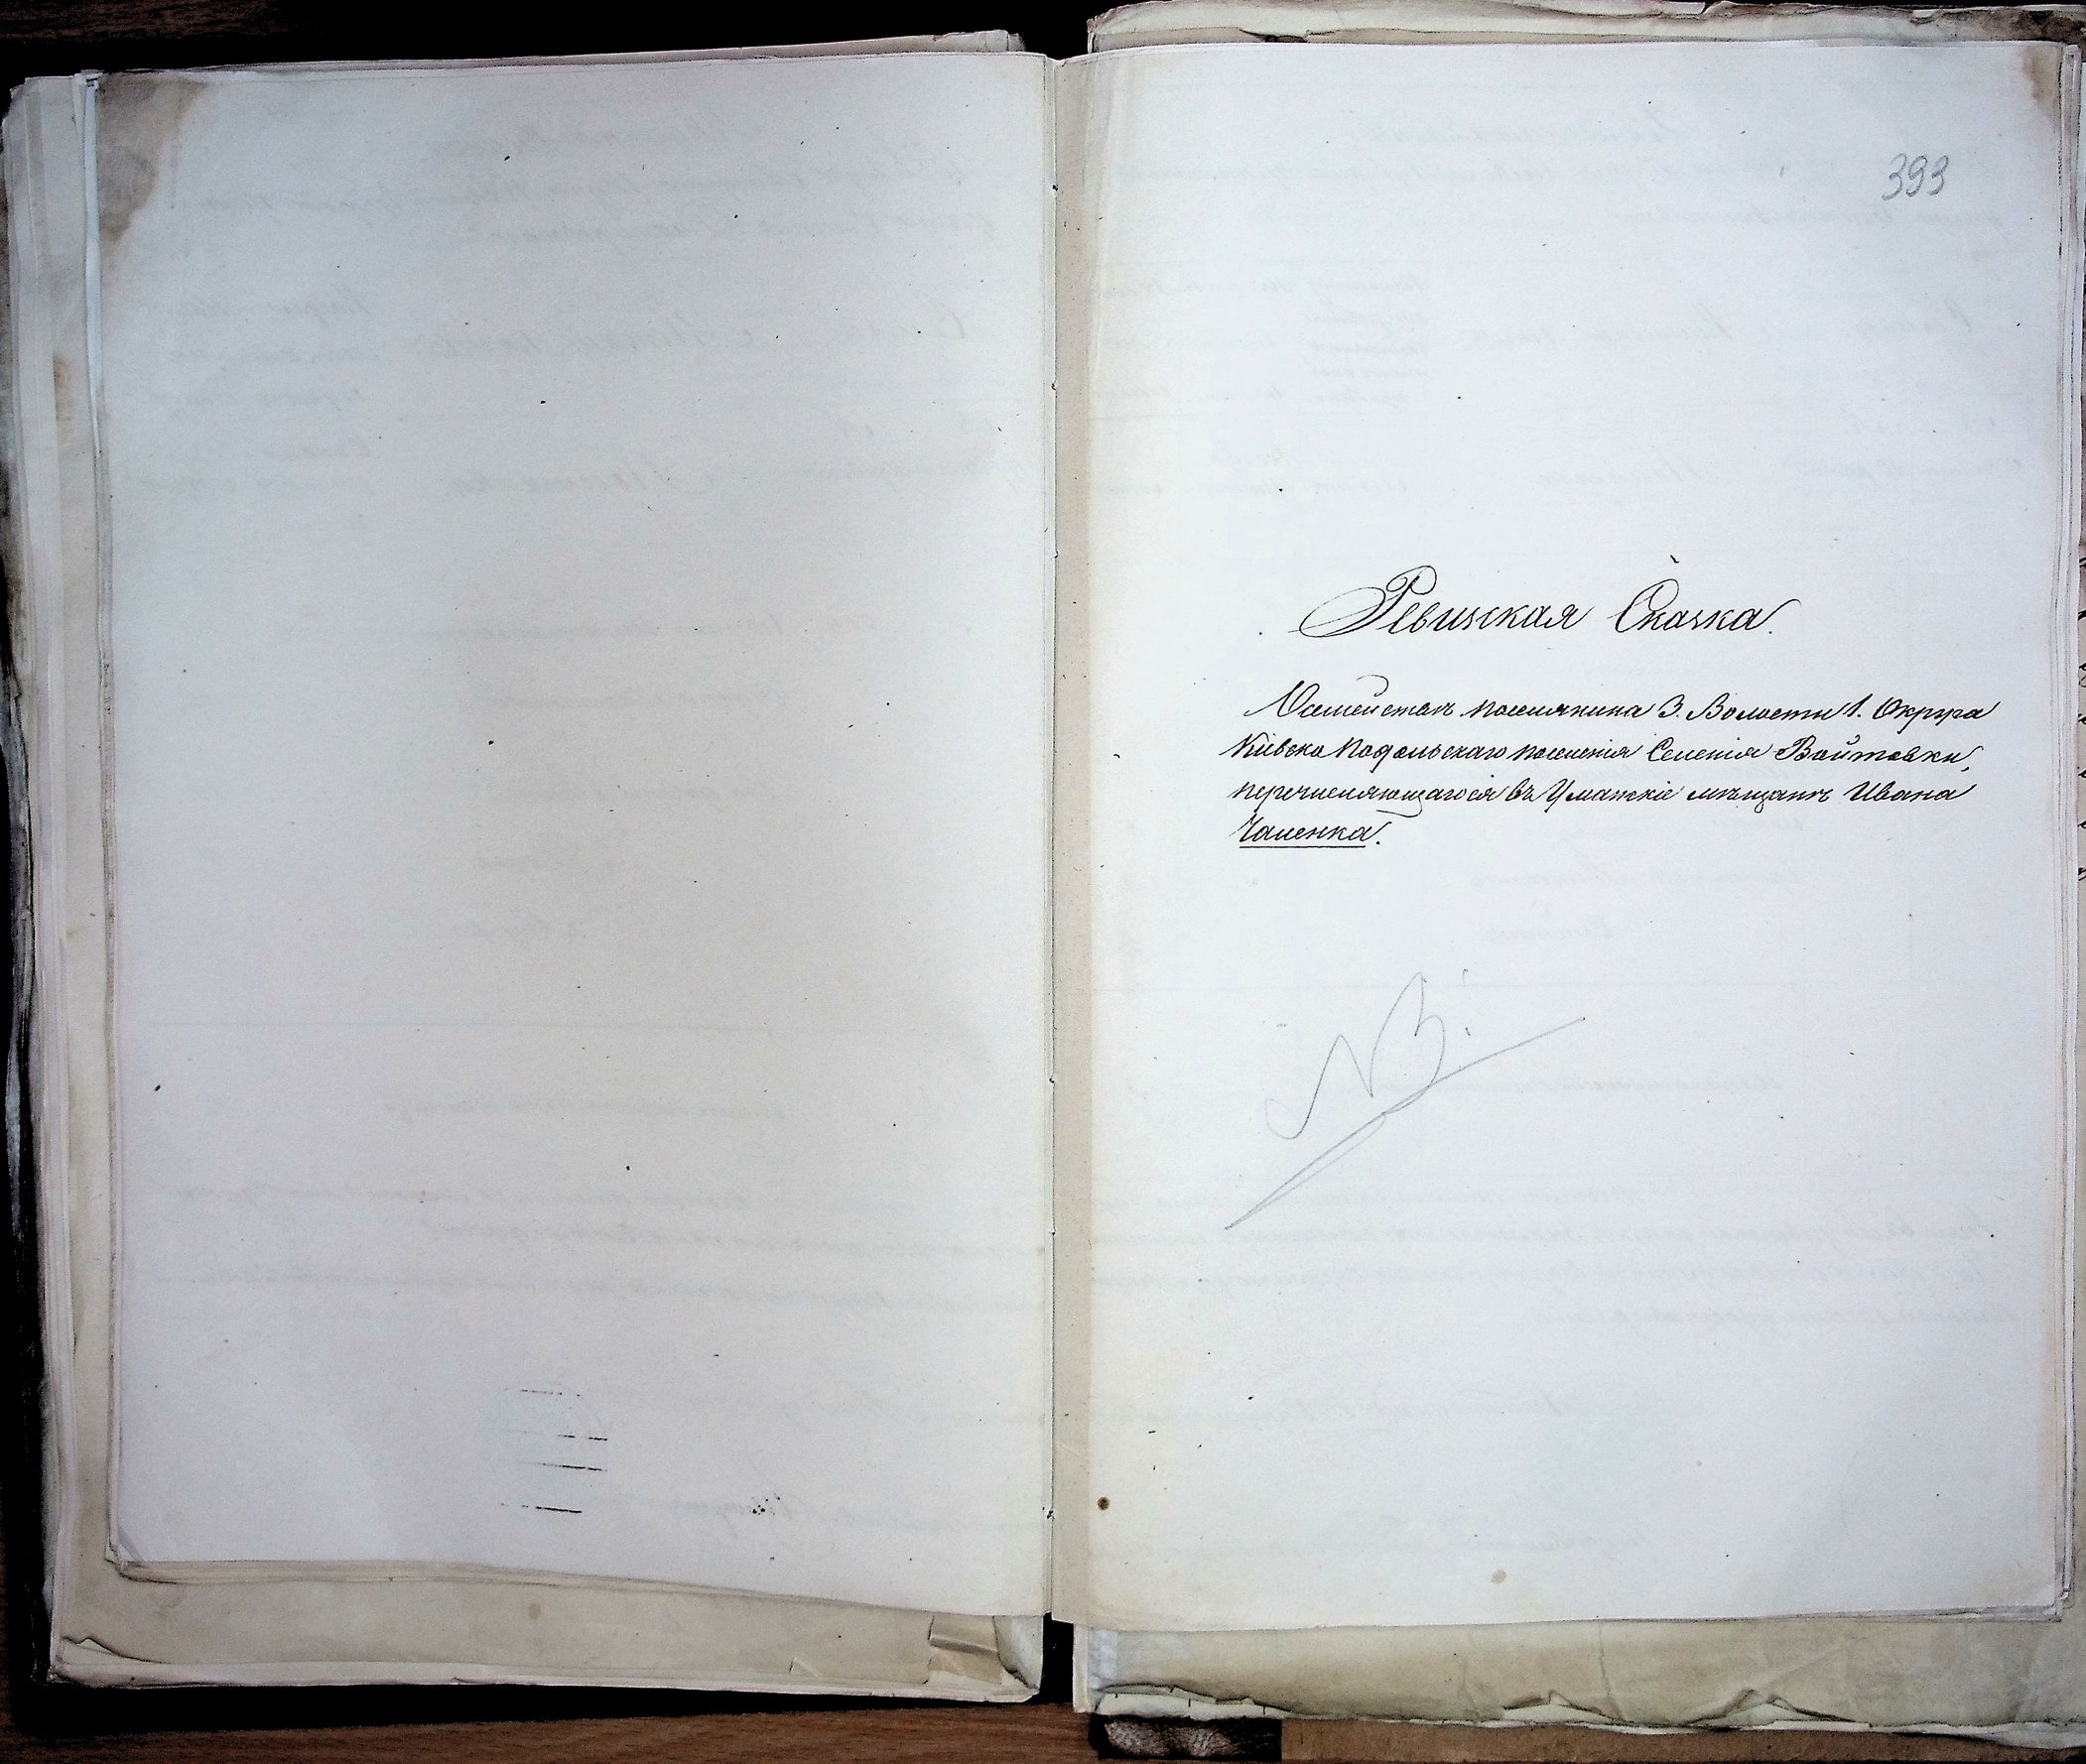 393
Ревизская Сказка.
О семействѣ поселянина 3. Волости 1. Округа
Кіевско Подольскаго поселенія Селенія Войтовки,
перечисляющагося въ Уманскіе мѣщане Ивана
Чаленка.
NB.